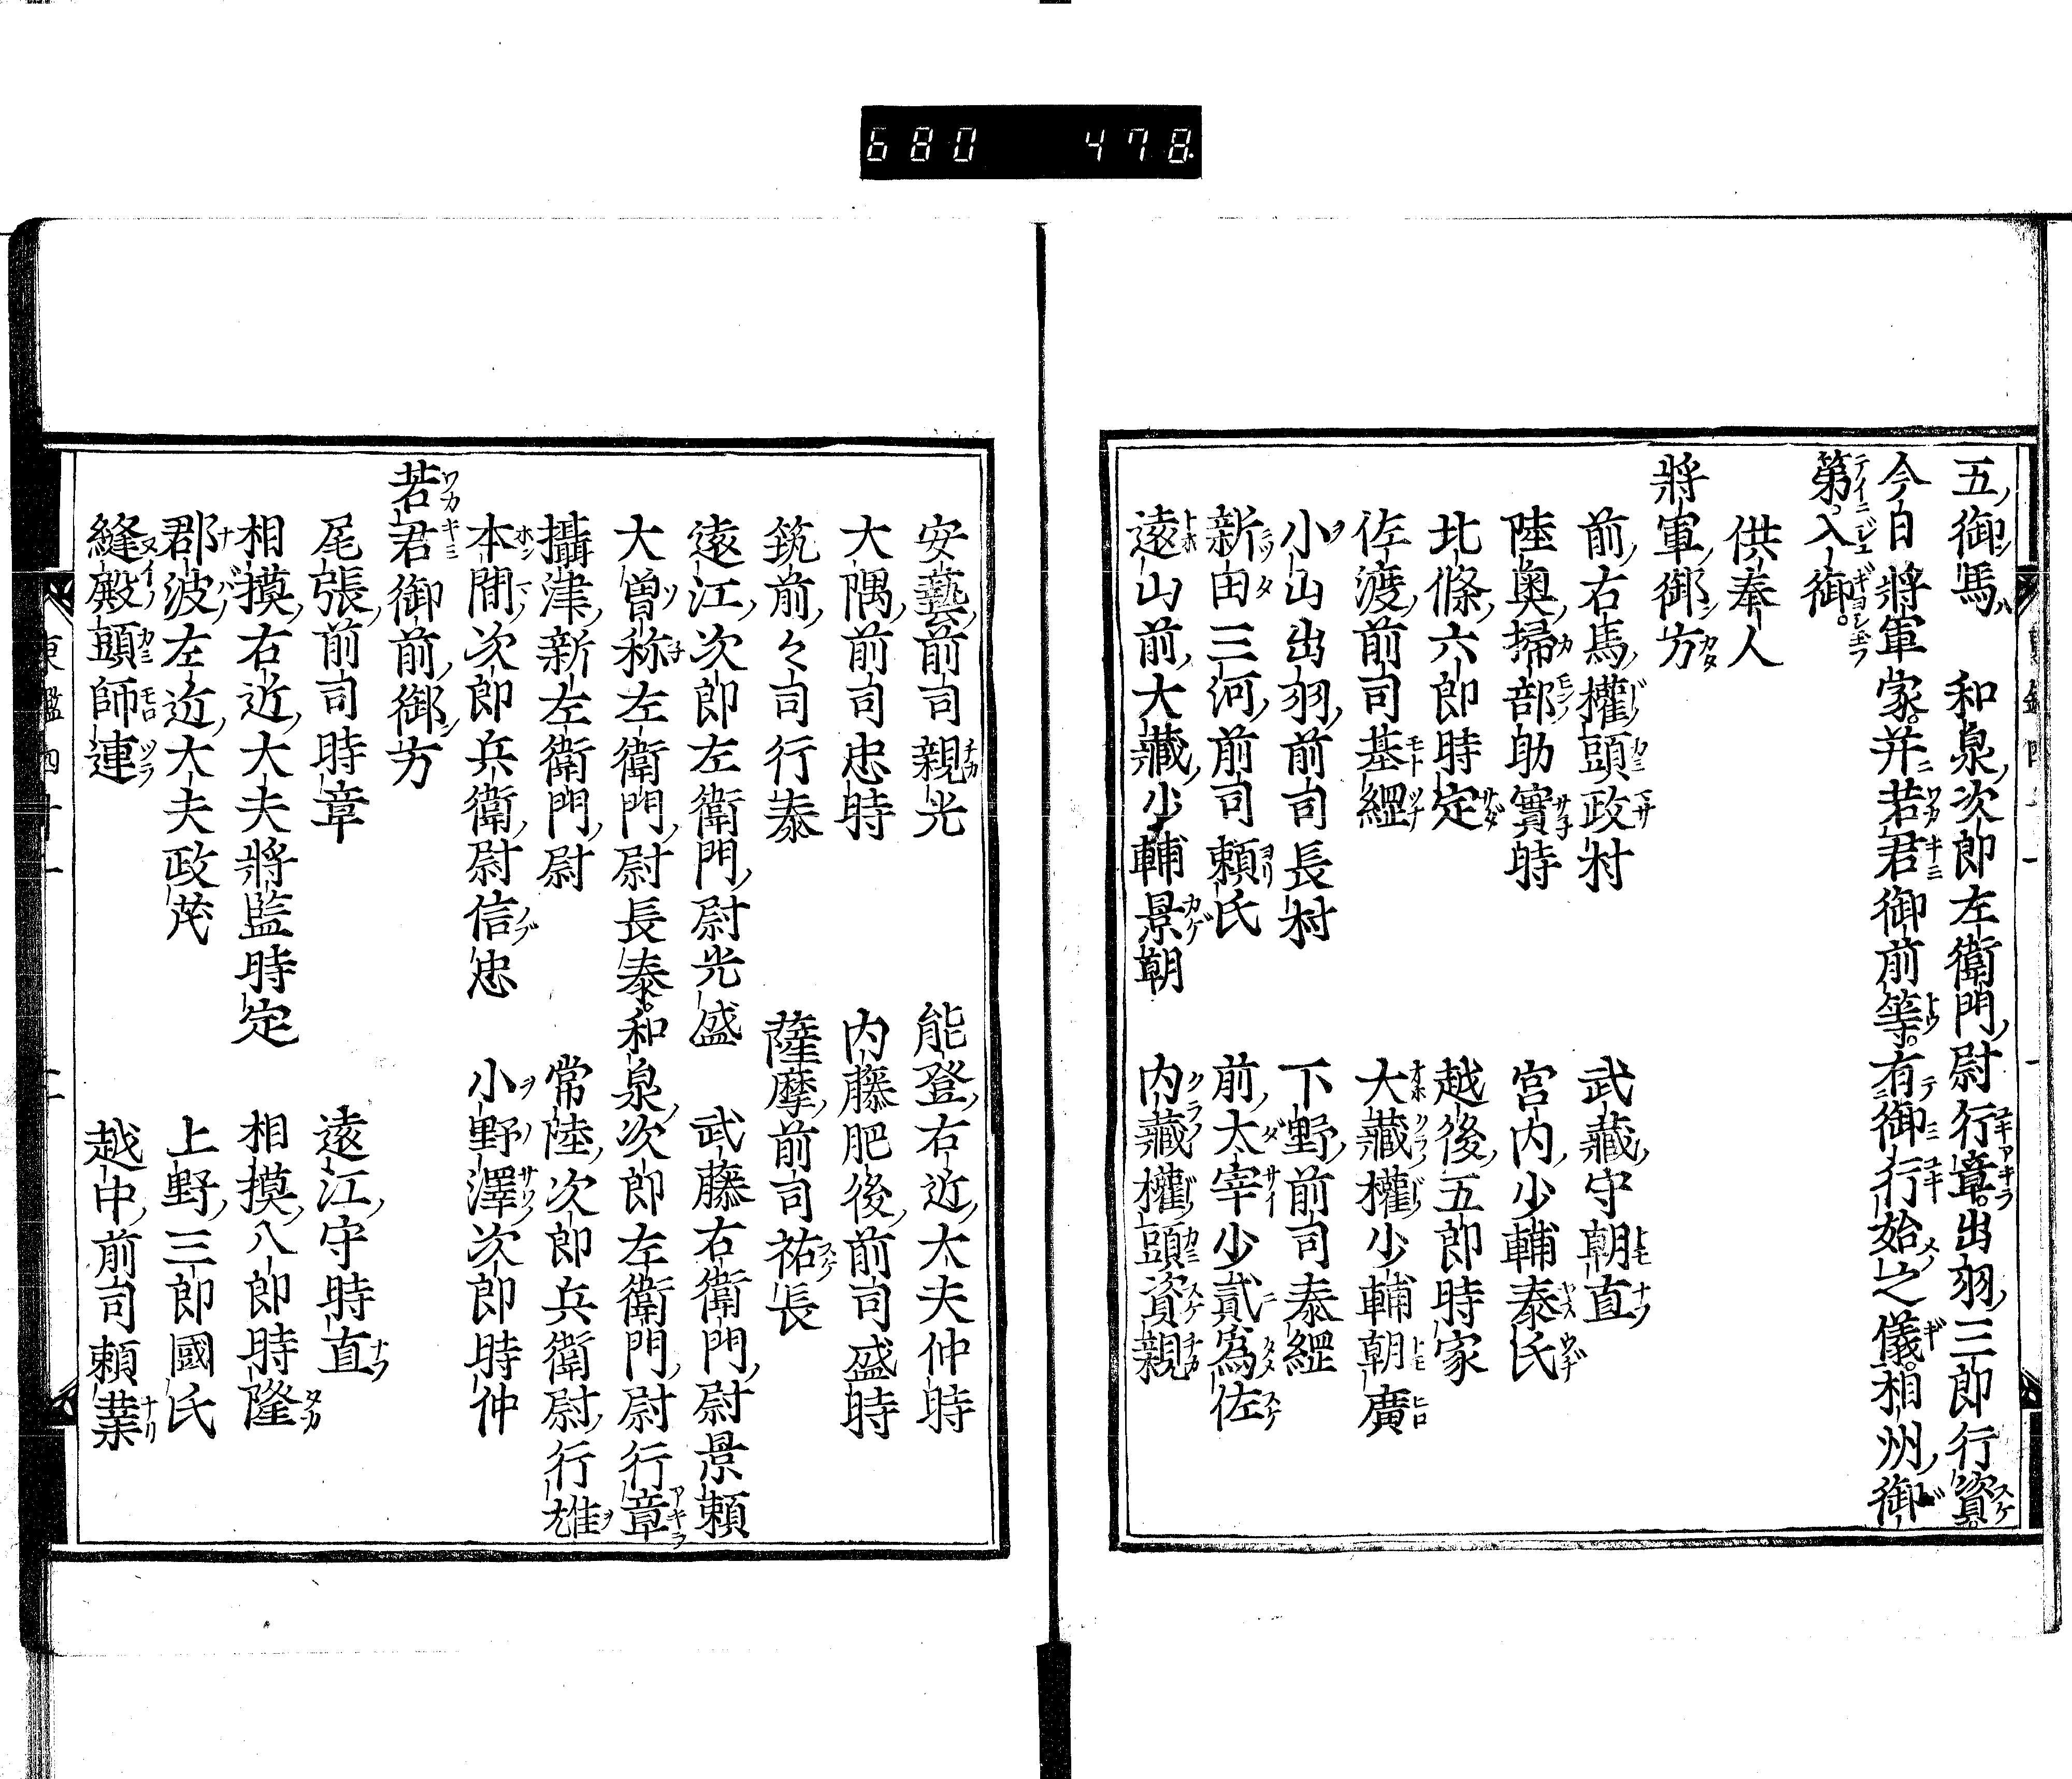 680 478
五御馬 和泉次郎左衛門尉行章。出羽三郎行資。
今日將軍家。并若君御前等。有御行始之儀。相州御
第入御。
供奉人
將軍御方
前右馬權頭政村 武藏守朝直
陸奥掃部助實時 宮内少輔泰氏
北條六郎時定 越後五郎時家
佐渡前司基綱 大藏權少輔朝廣
小山出羽前司長村 下野前司泰綱
新田三河前司頼氏 前太宰少貳為佐
遠山前大藏少輔景朝 内藏權頭資親
安藝前司親光 能登右近大夫仲時
大隅前司忠時 内藤肥後前司盛時
筑前々司行泰 薩摩前司祐長
遠江次郎左衛門尉光盛 武藤右衛門尉景頼
大曽称左衛門尉長泰。和泉次郎左衛門尉行章
攝津新左衛門尉 常陸次郎兵衛尉行雄
本間次郎兵衛尉信忠 小野澤次郎時仲
若君御前御方
尾張前司時章 遠江守時直
相摸右近大夫將監時定 相摸八郎時隆
郡波左近大夫政茂 上野三郎國氏
縫殿頭師連 越中前司頼業